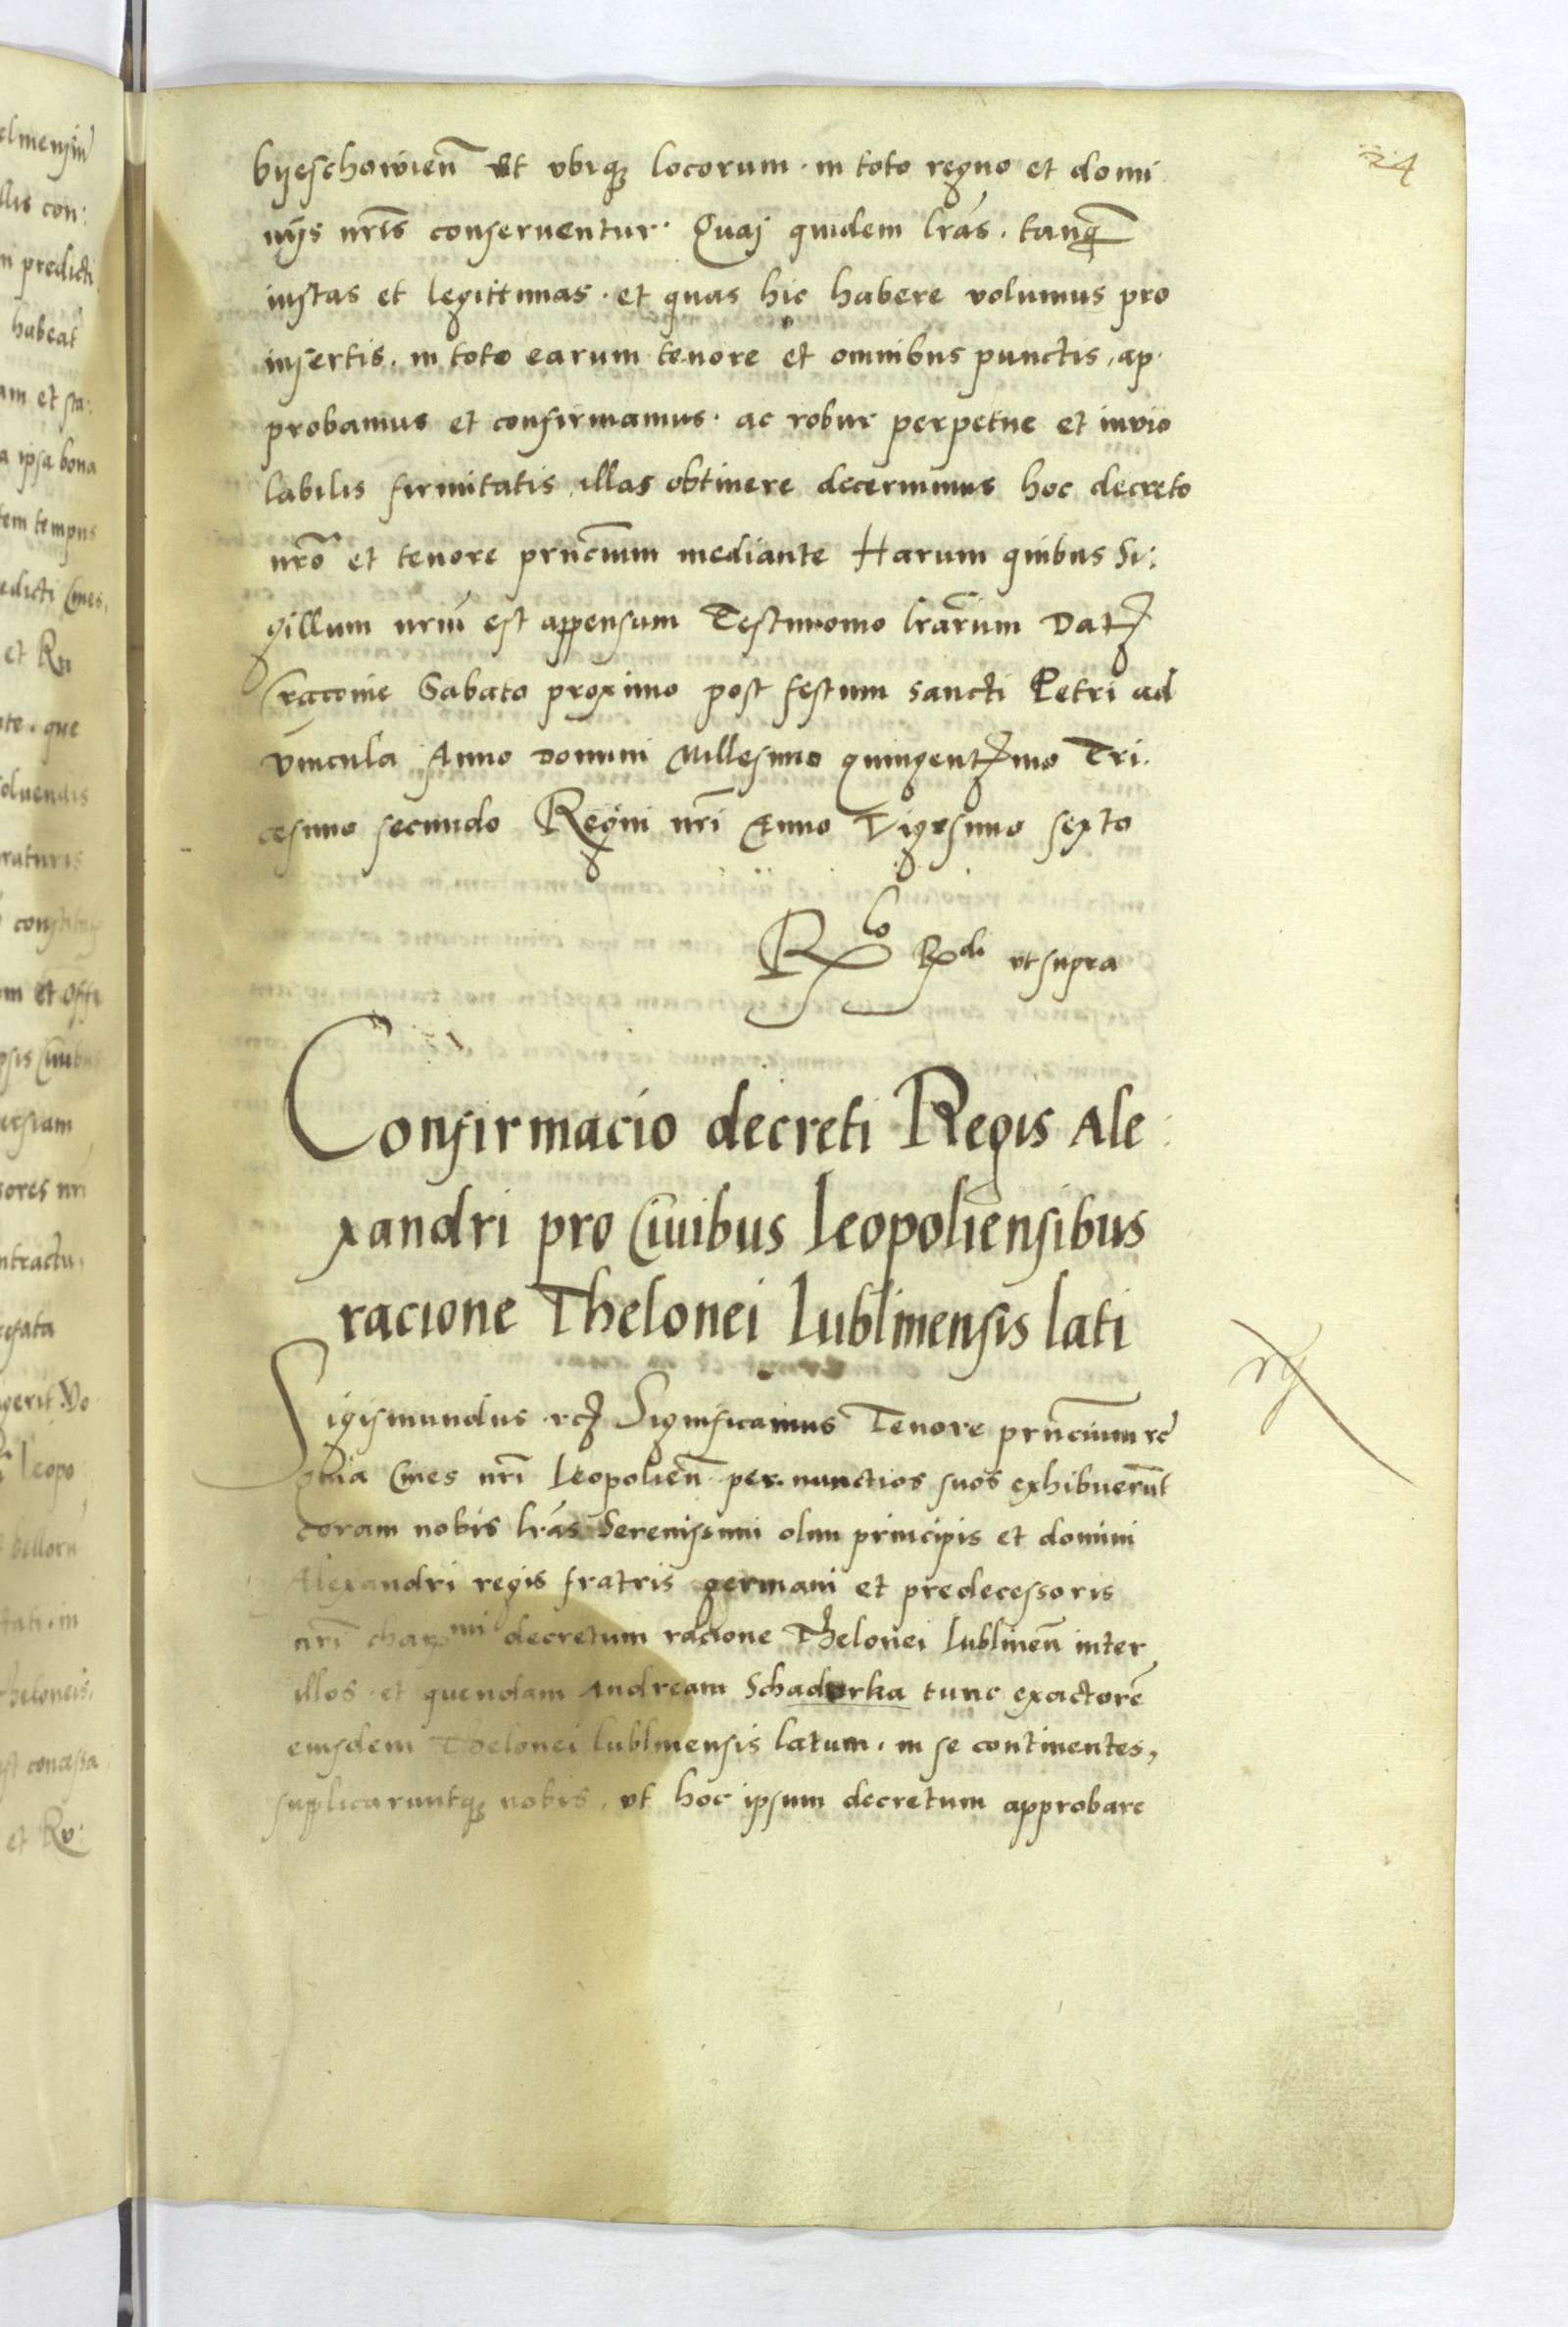 24
byeschowien̄ et vbiqȝ locorum · in toto regno et domi
nijs nr̄is conseruentur · Quas quidem lr̄as · tanq̄
iustas et legittimas · et quas hic habere volumus pro
insertis · in toto earum tenore et omnibus punctis, ap·
probamus et confirmamus · ac robur perpetue et invio
labilis firmitatis illas obtinere decernimus hoc decreto
nr̄o et tenore pn̄cium mediante Harum quibus Si:
gillum nr̄m est appensum Testimonio lr̄arum Datȝ
Cracouie Sabato proximo post festum sancti Petri ad
vincula Anno Domini Millesimo quingentȝmo Tri·
cesimo secundo Regni nr̄i Anno Vigesimo sexto
Rlo Rdi vt supra
Confirmacio decreti Regis Ale
xandri pro Ciuibus Leopolien̄sibus
racione Thelonei Lublinensis lati
Sigismundus rcȝ Significamus Tenore pn̄cium rc̄
Ciues nr̄i Leopolien̄ per nunctios suos exhibuerūt
coram nobis lr̄as Serenissimi olim principis et domini
Alexandri regis fratris germani et predecessoris
nr̄i charmi decretum racione Thelonei Lublinen̄ inter
illos · et quendam Andream Schadurka tunc exactorē
eiusdem Thelonei lublinensis latum · in se continentes,
suplicaruntqȝ nobis, vt hoc ipsum decretum approbare